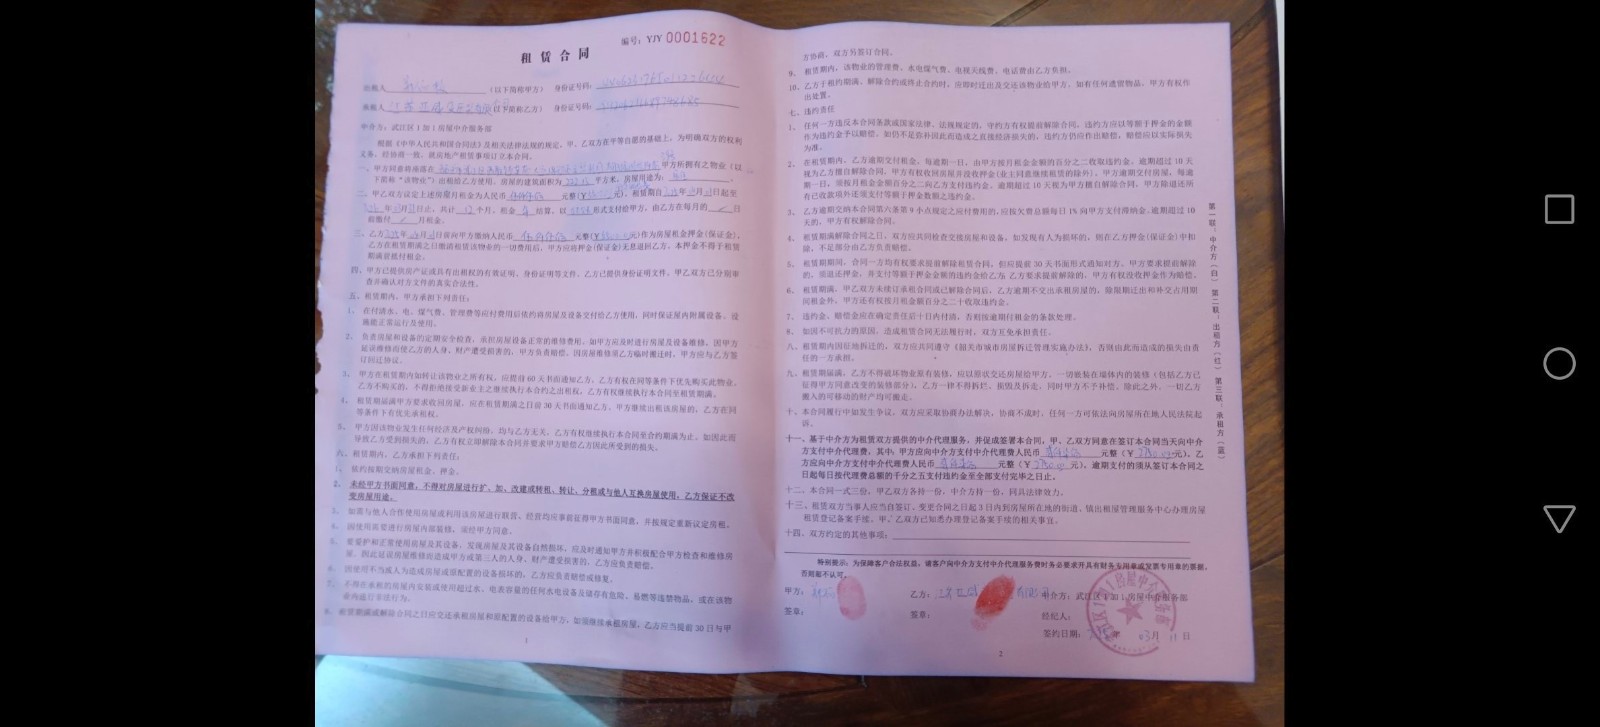 编号：YJY 0001622
租赁合同
出租人 （以下简称甲方） 身份证号码：
承租人 （以下简称乙方） 身份证号码：
中介方：武江区1加1房屋中介服务部
根据《中华人民共和国合同法》及相关法律法规的规定，甲、乙双方在平等自愿的基础上，为明确双方的权利
义务，经协商一致，就房地产租赁事项订立本合同。
一、甲方同意将座落在 甲方所拥有之物业（以
下简称“该物业”）出租给乙方使用，房屋的建筑面积为 平方米，房屋用途为：
二、甲乙双方议定上述房屋月租金为人民币 元整（¥ 元），租赁期自 年 月 日起至
年 月 日止，共计 12 个月，租金 结算，以 形式支付给甲方，由乙方在每月的 日
前缴付 月租金。
三、乙方 年 月 日前向甲方缴纳人民币 元整（¥ 元）作为房屋租金押金（保证金），
乙方在租赁期满之日缴清租赁该物业的一切费用后，甲方应将押金（保证金）无息退回乙方，本押金不得于租赁
期满前抵付租金。
四、甲方已提供房产证或具有出租权的有效证明、身份证明等文件，乙方已提供身份证明文件。甲乙双方已分别审
查并确认对方文件的真实合法性。
五、租赁期内，甲方承担下列责任：
1、在付清水、电、煤气费、管理费等应付费用后依约将房屋及设备交付给乙方使用，同时保证屋内附属设备、设
施能正常运行及使用。
2、负责房屋和设备的定期安全检查，承担房屋设备正常的维修费用。如甲方应及时进行房屋及设备维修，因甲方
延误维修而使乙方的人身、财产遭受损害的，甲方负责赔偿。因房屋维修须乙方临时搬迁时，甲方应与乙方签
订回迁协议。
3、甲方在租赁期内如转让该物业之所有权，应提前60天书面通知乙方，乙方有权在同等条件下优先购买此物业。
乙方不购买的，不得拒绝接受新业主之继续执行本合约之出租权，乙方有权继续执行本合同至租赁期满。
4、租赁期届满甲方要求收回房屋，应在租赁期满之日前30天书面通知乙方，甲方继续出租该房屋的，乙方在同
等条件下有优先承租权。
5、甲方因该物业发生任何经济及产权纠纷，均与乙方无关，乙方有权继续执行本合同至合约期满为止。如因此而
导致乙方受到损失的，乙方有权立即解除本合同并要求甲方赔偿乙方因此所受到的损失。
六、租赁期内，乙方承担下列责任：
1、依约按期交纳房屋租金、押金。
2、未经甲方书面同意，不得对房屋进行扩、加、改建或转租、转让、分租或与他人互换房屋使用，乙方保证不改
变房屋用途。
3、如需与他人合作使用房屋或利用该房屋进行联营、经营均应事前征得甲方书面同意，并按规定重新议定房租。
4、因使用需要进行房屋内部装修，须经甲方同意。
5、要爱护和正常使用房屋及其设备，发现房屋及其设备自然损坏，应及时通知甲方并积极配合甲方检查和维修房
屋，因此延误房屋维修而造成甲方或第三人的人身、财产遭受损害的，乙方应负责赔偿。
6、因使用不当或人为造成房屋或原配置的设备损坏的，乙方应负责赔偿或修复。
7、不得在承租的房屋内安装或使用超过水、电表容量的任何水电设备及储存有危险、易燃等违禁物品，或在该物
业内进行非法行为。
8、租赁期满或解除合同之日应交还承租房屋和原配置的设备给甲方，如须继续承租房屋，乙方应当提前30日与甲
1
方协商，双方另签订合同。
9、租赁期内，该物业的管理费、水电煤气费、电视天线费、电话费由乙方负担。
10、乙方于租约期满、解除合约或终止合约时，应即时迁出及交还该物业给甲方。如有任何遗留物品，甲方有权作
出处置。
七、违约责任
1、任何一方违反本合同条款或国家法律、法规规定的，守约方有权提前解除合同，违约方应以等额于押金的金额
作为违约金予以赔偿，如仍不足弥补因此而造成之直接经济损失的，违约方仍应作出赔偿，赔偿应以实际损失
为准。
2、在租赁期内，乙方逾期交付租金，每逾期一日，由甲方按月租金金额的百分之二收取违约金，逾期超过10天
视为乙方擅自解除合同，甲方有权收回房屋并没收押金（业主同意继续租赁的除外）。甲方逾期交付房屋，每逾
期一日，须按月租金金额百分之二向乙方支付违约金，逾期超过10天视为甲方擅自解除合同，甲方除退还所
有已收款项外还须支付等额于押金数额之违约金。
3、乙方逾期交纳本合同第六条第9小点规定之应付费用的，应按欠费总额每日1%向甲方支付滞纳金。逾期超过10
天的，甲方有权解除合同。
4、租赁期满解除合同之日，双方应共同检查交接房屋和设备，如发现有人为损坏的，则在乙方押金（保证金）中扣
除，不足部分由乙方负责赔偿。
5、租赁期期间，合同一方均有权要求提前解除租赁合同，但应提前30天书面形式通知对方。甲方要求提前解除
的，须退还押金，并支付等额于押金金额的违约金给乙方；乙方要求提前解除的，甲方有权没收押金作为解除。
6、租赁期满，甲乙双方未续订承租合同或已解除合同后，乙方逾期不交出承租房屋的，除限期迁出和补交占用期
间租金外，甲方还有权按月租金额百分之二十收取违约金。
7、违约金、赔偿金应在确定责任后十日内付清，否则按逾期付租金的条款处理。
8、如因不可抗力的原因，造成租赁合同无法履行时，双方互免承担责任。
八、租赁期内因征地拆迁的，双方应共同遵守《韶关市城市房屋拆迁管理实施办法》，否则由此而造成的损失由责
任的一方承担。
九、租赁期届满，乙方不得破坏物业原有装修，应以原状交还房屋给甲方，一切嵌装在墙体内的装修（包括乙方已
征得甲方同意改变的装修部分），乙方一律不得拆烂、损毁及拆走，同时甲方不予补偿。除此之外，一切乙方
搬入的可移动的财产均可搬走。
十、本合同履行中如发生争议，双方应采取协商办法解决，协商不成时，任何一方可依法向房屋所在地人民法院起
诉。
十一、基于中介方为租赁双方提供的中介代理服务，并促成签署本合同，甲、乙双方同意在签订本合同当天向中介
方支付中介代理费，其中：甲方应向中介方支付中介代理费人民币 元整（¥ 元），乙
方应向中介方支付中介代理费人民币 元整（¥ 元），逾期支付的须从签订本合同之
日起每日按代理费总额的千分之五支付违约金至全部支付完毕之日止。
十二、本合同一式三份，甲乙双方各持一份，中介方持一份，同具法律效力。
十三、租赁双方当事人应当自签订、变更合同之日起3日内到房屋所在地的街道、镇出租屋管理服务中心办理房屋
租赁登记备案手续。甲、乙双方已知悉办理登记备案手续的相关事宜。
十四、双方约定的其他事项：
特别提示：为保障客户合法权益，请客户向中介方支付中介代理服务费时务必要求开具有财务专用章或发票专用章的票据，
否则恕不认可。
甲方： 乙方： 中介方：武江区1加1房屋中介服务部
签章： 签章： 经纪人：
签约日期： 年 03月 11 日
2
第一联：中介方（白） 第二联：出租方（红） 第三联：承租方（蓝）